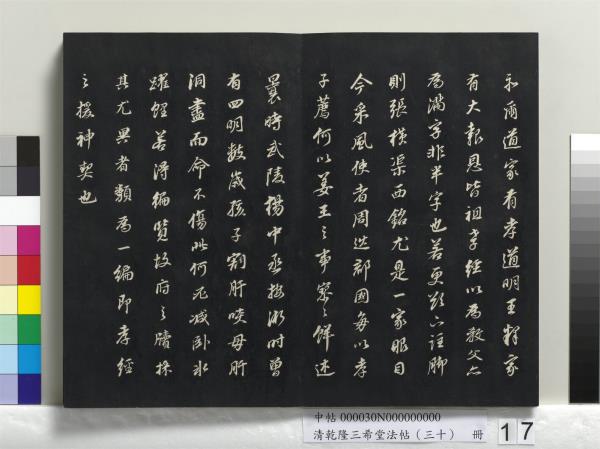 示爾道家有孝道明王釋家
有大報恩皆祖孝經以為教父六
為滿字非半字也若更疑六註脚
則張橫渠西銘尤是一家眼目
今采風使者周巡郡國每以孝
子薦何以姜王之事寥寥鮮述
曩時武陵楊中丞按浙時曾
有四明數歲孩子割肝啖母肝
洞盡而命不傷此何元減卧冰
躍鯉若得編覽故府之牘採
其尤異者類為一編即孝經
之援神契也
中帖 000030N000000000
清乾隆三希堂法帖（三十） 冊
17